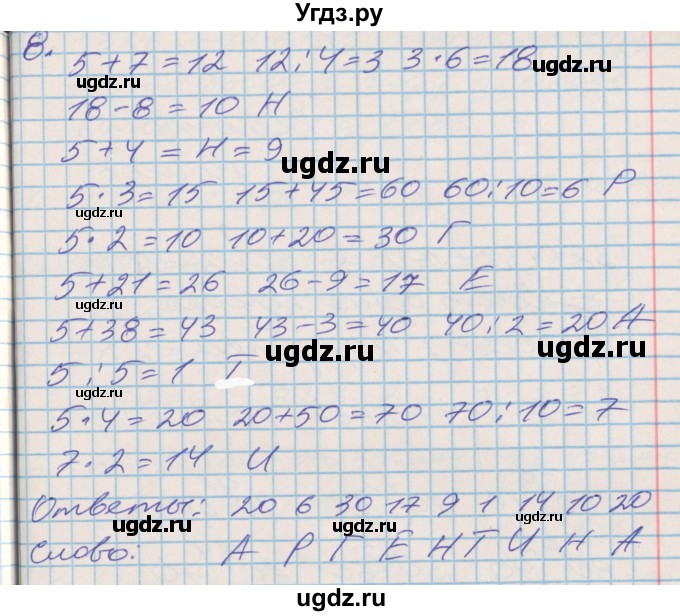 Угдз.ру
8. 5+7=12 12:4=3 3·6=18
18-8=10 Н
5+4=Н=9
5·3=15 15+45=60 60:10=6 Р
5·2=10 10+20=30 Г
5+21=26 26-9=17 Е
5+38=43 43-3=40 40:2=20 А
5:5=1 Т
5·4=20 20+50=70 70:10=7
7·2=14 И
Ответы: 20 6 30 17 9 1 14 10 20
Слово: А Р Г Е Н Т И Н А
ugdz.ru
ugdz.ru
ugdz.ru
ugdz.ru
ugdz.ru
ugdz.ru
ugdz.ru
ugdz.ru
ugdz.ru
ugdz.ru
ugdz.ru
ugdz.ru
ugdz.ru